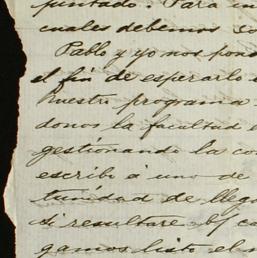 puntado. Para
cuales debemos
Pablo y yo nos pon
el fin de esperarlo
Nuestro programa
donos la facultad
gestionando la co
escribe á uno de
tunidad de llega
si resultare
gamos listo el